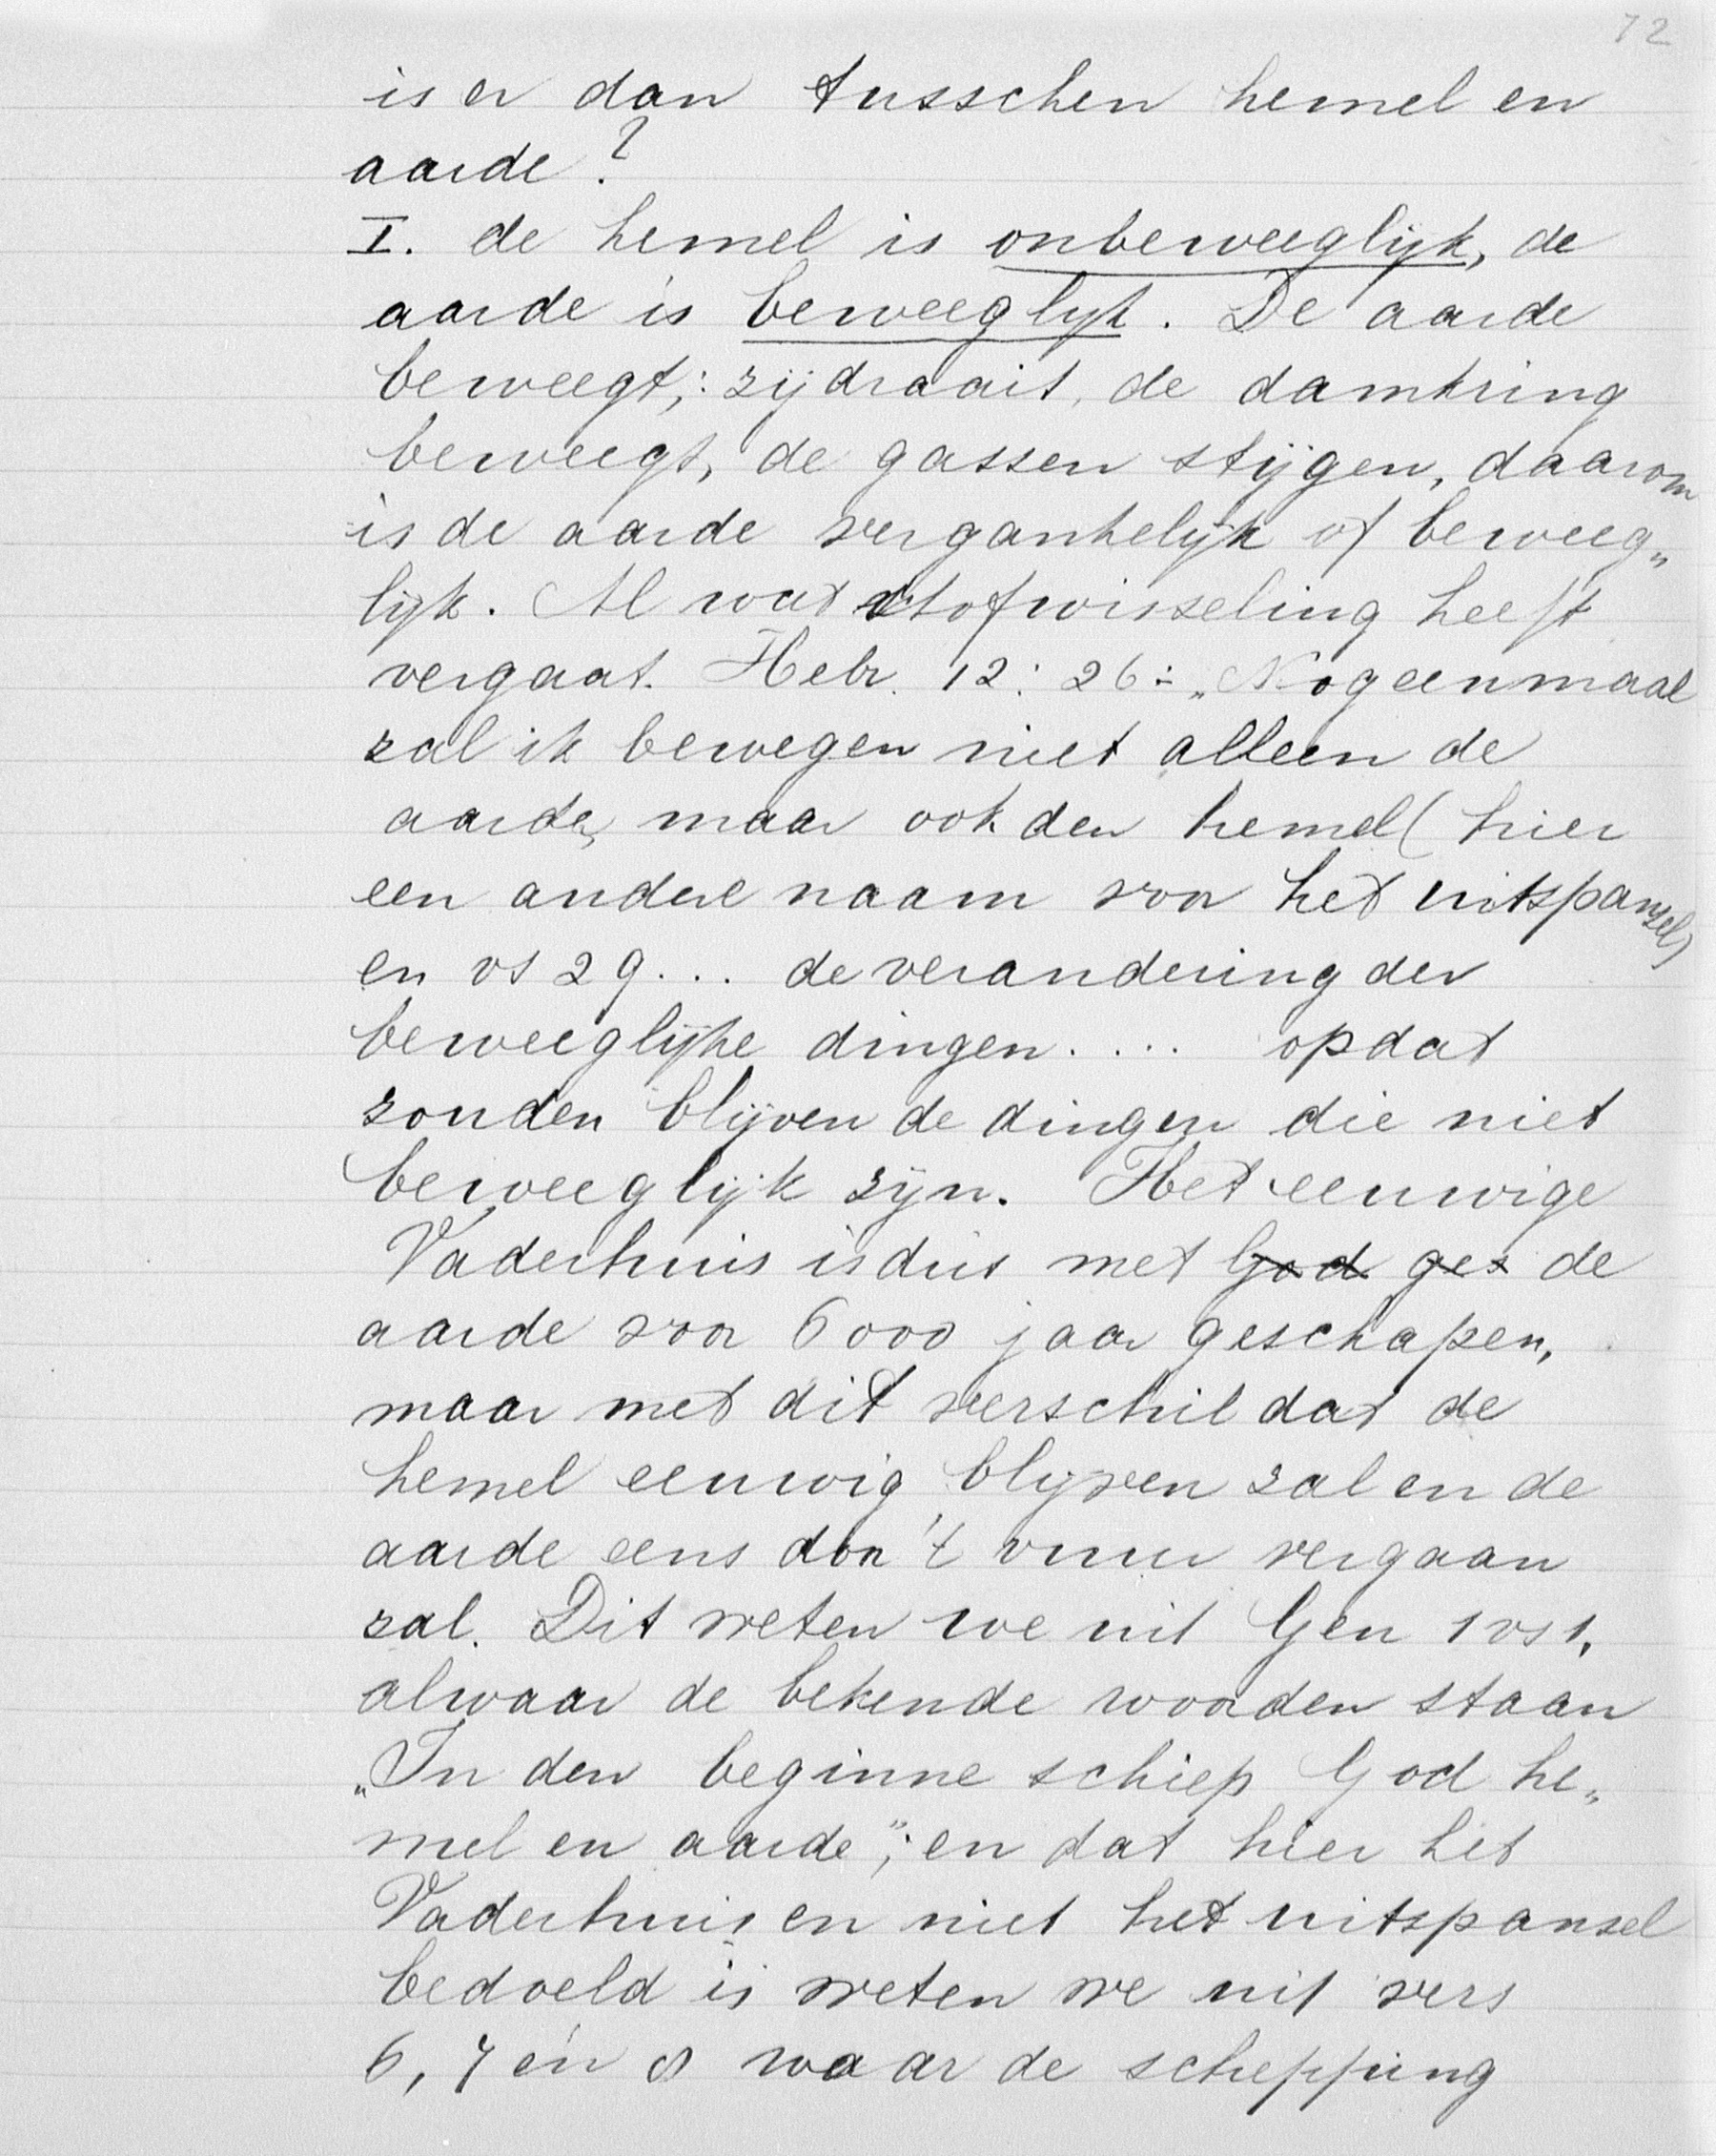 72
is er dan tusschen hemel en
aarde?
I. de hemel is onbeweeglijk, de
aarde is beweeglijk. De aarde
beweegt; zij draait, de damkring
beweegt, de gassen stijgen, daarom
is de aarde vergankelijk of beweeg„
lijk. Al wat stofwisseling heeft
vergaat. Hebr. 12:26: „Nog eenmaal
zal ik bewegen niet alleen de
aarde, maar ook den hemel (hier
een andere naam voor het uitspansel)
en vs 29... de verandering der
beweeglijke dingen.... opdat
zouden blijven de dingen die niet
beweeglijk zijn. Het eeuwige
Vaderhuis is dus met God ges de
aarde voor 6000 jaar geschapen,
maar met dit verschil dat de
hemel eeuwig blijven zal en de
aarde eens door 't vuur vergaan
zal. Dit weten we uit Gen 1 vs 1,
alwaar de bekende woorden staan
„In den beginne schiep God he„
mel en aarde"; en dat hier het
Vaderhuis en niet het uitspansel
bedoeld is weten we uit vers
6, 7 én 8 waar de schepping